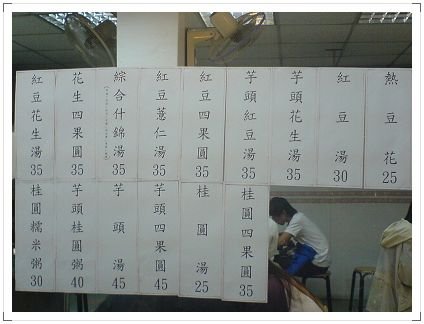 紅豆花生湯 35
花生四果圓 35
綜合什錦湯 35
紅豆薏仁湯 35
紅豆四果圓 35
芋頭紅豆湯 35
芋頭花生湯 35
紅豆湯 30
熱豆花 25
桂圓糯米粥 30
芋頭桂圓粥 40
芋頭湯 45
芋頭四果圓 45
桂圓湯 25
桂圓四果圓 35